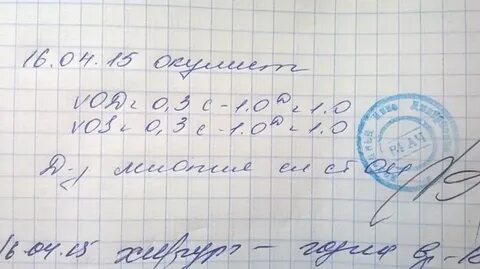 16.04.15 окулист
VOD = 0,3 с -1.0 D = 1.0
VOS = 0,3 с -1.0 D = 1.0
D-з миопия сл ст OU
ВРАЧ
16.04.15 хирург - годна